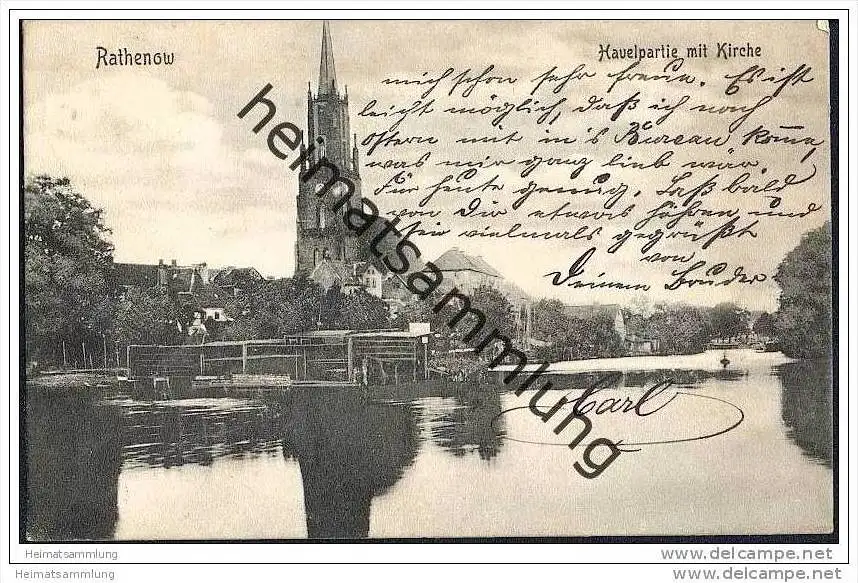 Rathenow
Havelpartie mit Kirche
mich schon sehr freue. Es ist
leicht möglich, daß ich nach
Ostern mit in's Bureau komme,
was mir ganz lieb wär.
Für heute genug. Laß bald
von Dir etwas hören und
sei vielmals gegrüßt
von
Deinem Bruder
Carl
heimatsammlung
Heimatsammlung
www.delcampe.net
Heimatsammlung
www.delcampe.net